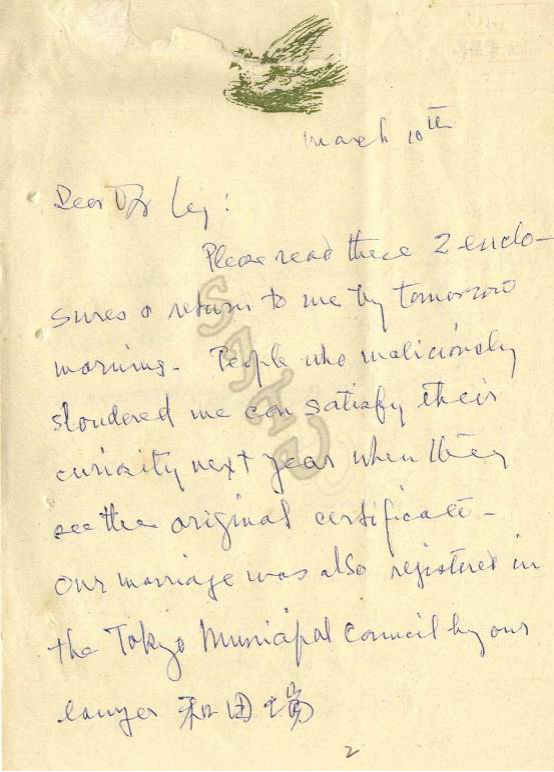 March 10th
Dear Dr Ley:
Please read these 2 enclo-
sures & return to me by tomorrow
morning. People who maliciously
slandered me can satisfy their
curiosity next year when they
see the original certificate -
Our marriage was also registered in
the Tokyo Municipal Council by our
lawyer 和田瑞
2